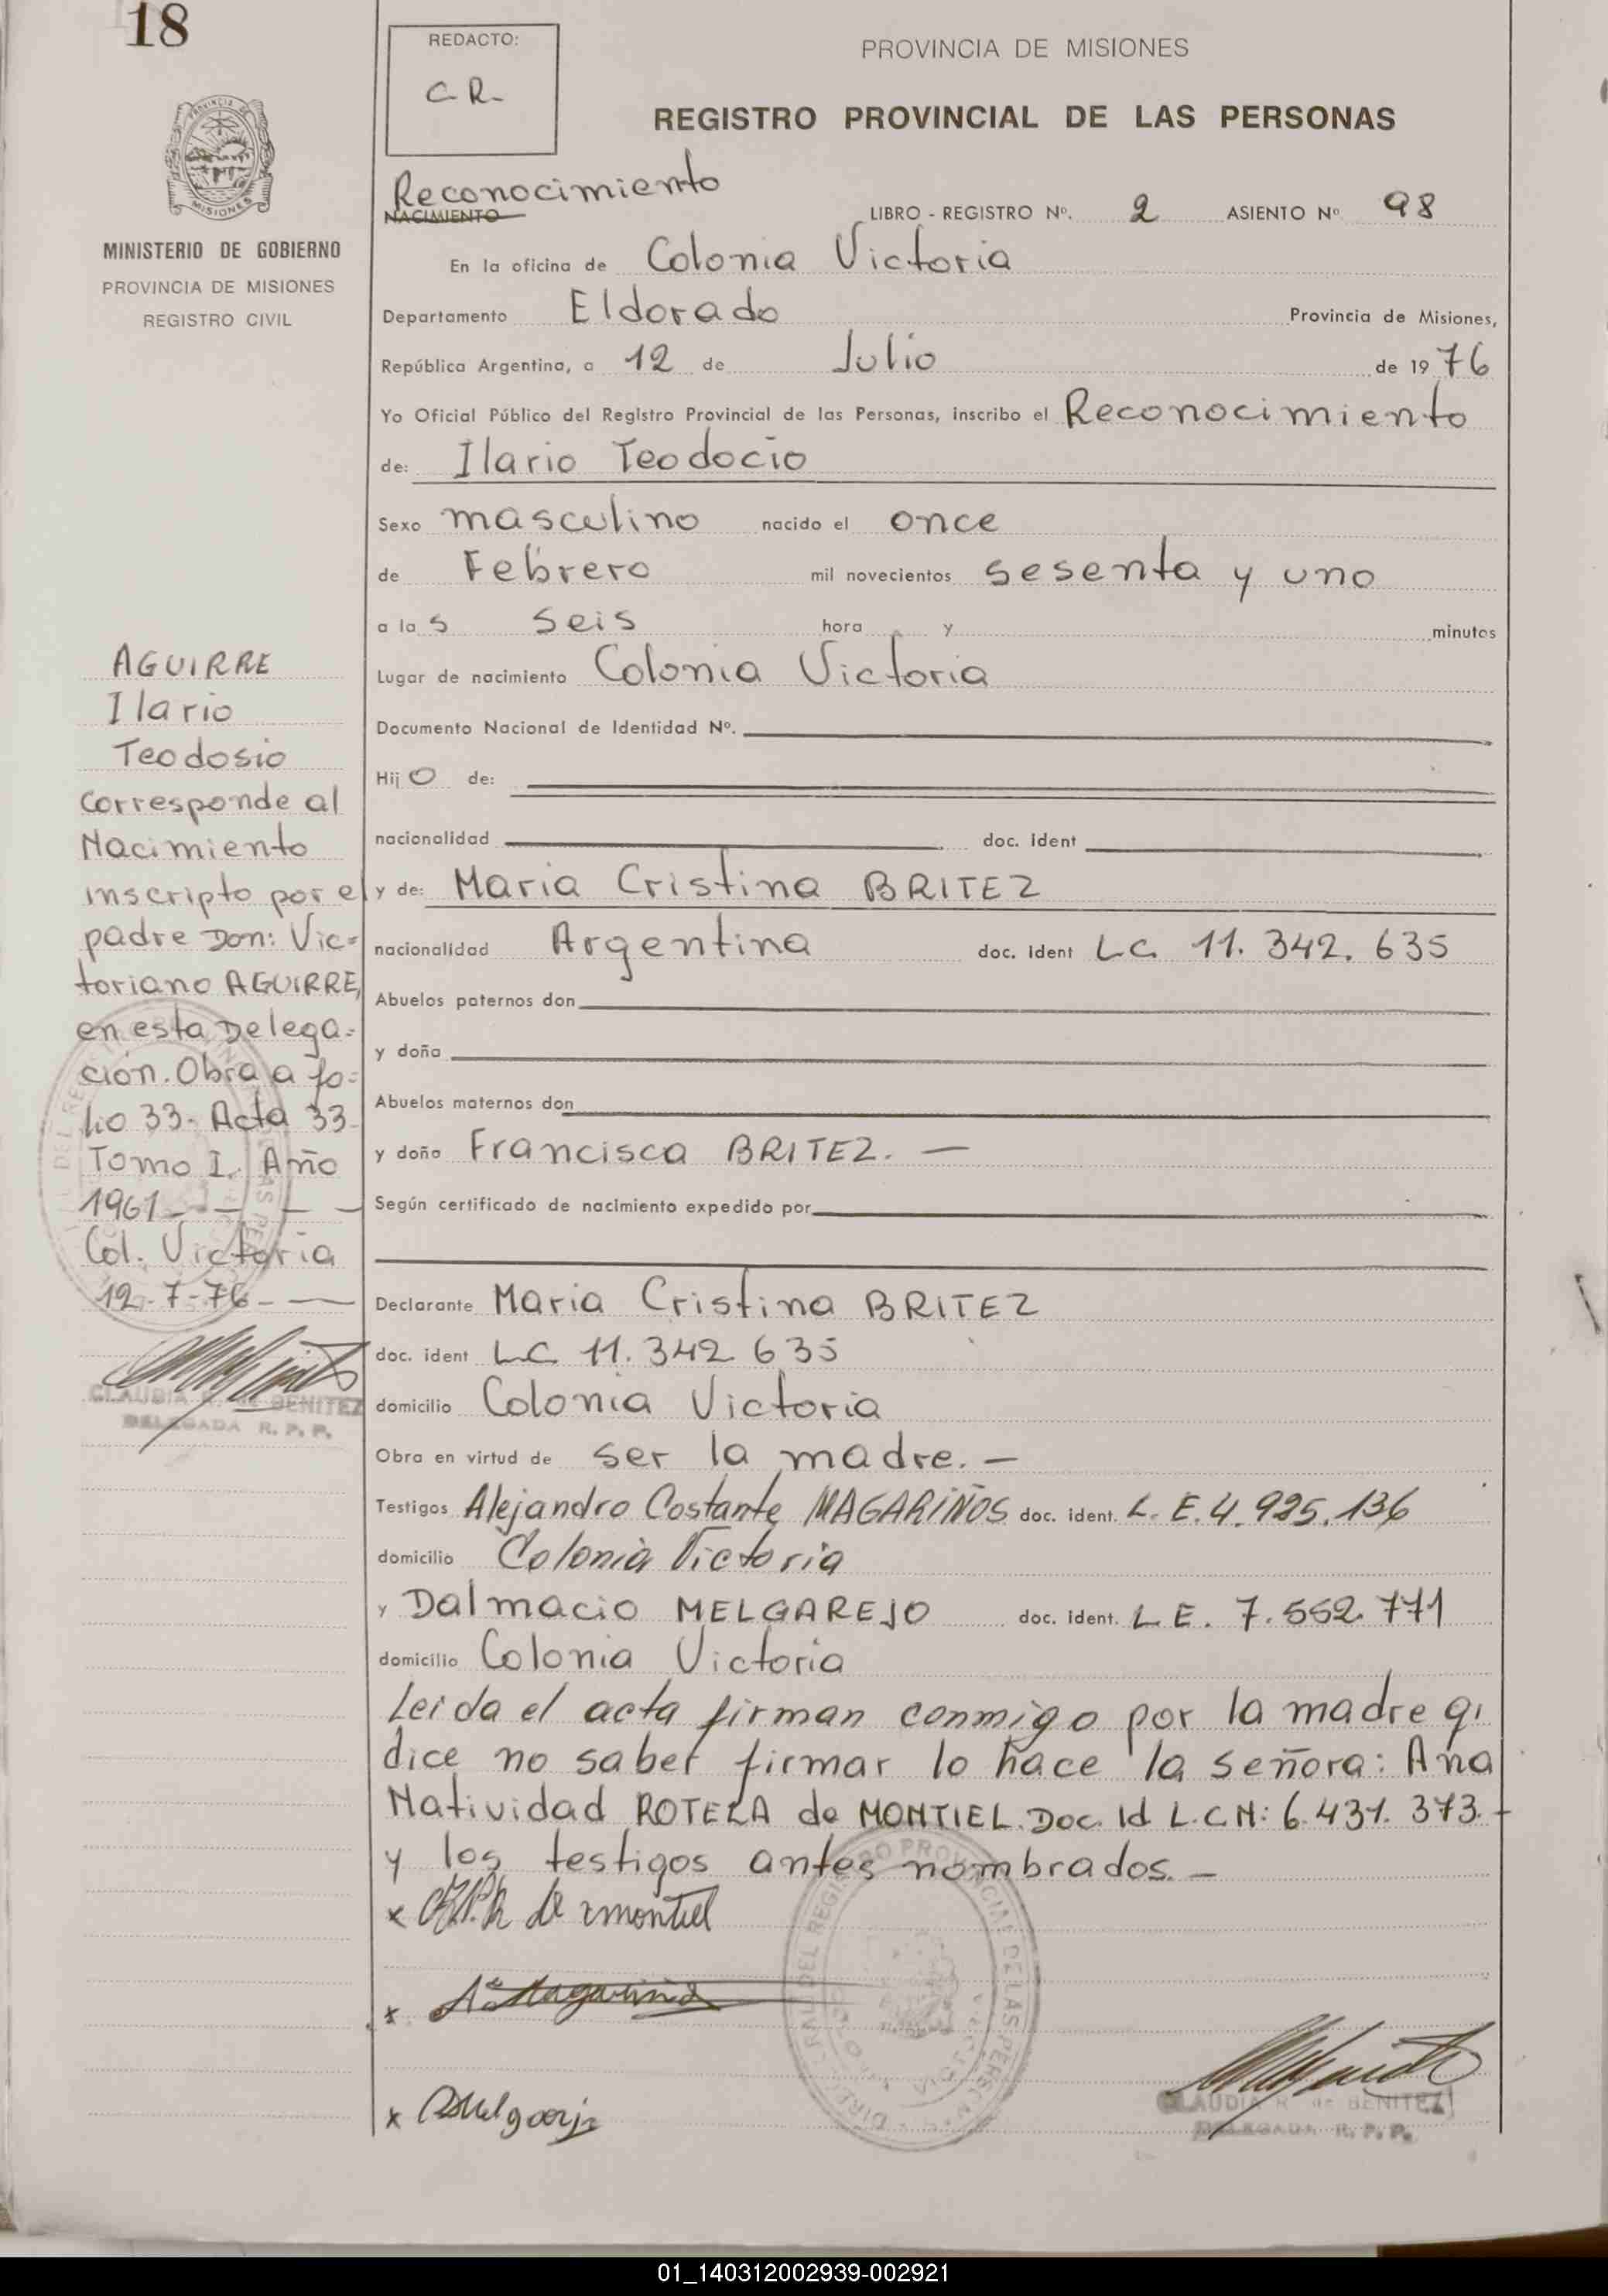 18
REDACTO:
C.R-
PROVINCIA DE MISIONES
REGISTRO PROVINCIAL DE LAS PERSONAS
MISIONES
MINISTERIO DE GOBIERNO
PROVINCIA DE MISIONES
REGISTRO CIVIL
Reconocimiento
NACIMIENTO
LIBRO - REGISTRO Nº. 2 ASIENTO Nº 98
En la oficina de Colonia Victoria
Departamento Eldorado Provincia de Misiones,
República Argentina, a 12 de Julio de 1976
Yo Oficial Público del Registro Provincial de las Personas, inscribo el Reconocimiento
de: Ilario Teodocio
Sexo masculino nacido el once
de Febrero mil novecientos sesenta y uno
a las seis hora y minutos
Lugar de nacimiento Colonia Victoria
Documento Nacional de Identidad Nº.
Hijo de:
nacionalidad doc. ident
y de: Maria Cristina BRITEZ
nacionalidad Argentina doc. ident L.C. 11.342.635
Abuelos paternos don
y doña
Abuelos maternos don
y doña Francisca BRITEZ. —
Según certificado de nacimiento expedido por
Declarante Maria Cristina BRITEZ
doc. ident L.C 11.342 635
domicilio Colonia Victoria
Obra en virtud de ser la madre. —
Testigos Alejandro Costante MAGARIÑOS doc. ident. L.E.4.925.136
domicilio Colonia Victoria
y Dalmacio MELGAREJO doc. ident. L.E. 7.552.771
domicilio Colonia Victoria
Leida el acta firman conmigo por la madre q'
dice no saber firmar lo hace la señora: Ana
Natividad ROTELA de MONTIEL. Doc. Id L.C.N: 6.431.373.-
y los testigos antes nombrados. —
AGUIRRE
Ilario
Teodosio
Corresponde al
Nacimiento
inscripto por el
padre Don: Vic=
toriano AGUIRRE,
en esta Delega=
ción. Obra a fo=
lio 33- Acta 33-
Tomo I. Año
1961 - — — —
Col. Victoria
12-7-76- —
CLAUDIA R. de BENITEZ
DELEGADA R. P. P.
x de montiel
x
x
CLAUDIA R. de BENITEZ
DELEGADA R. P. P.
01_140312002939-002921